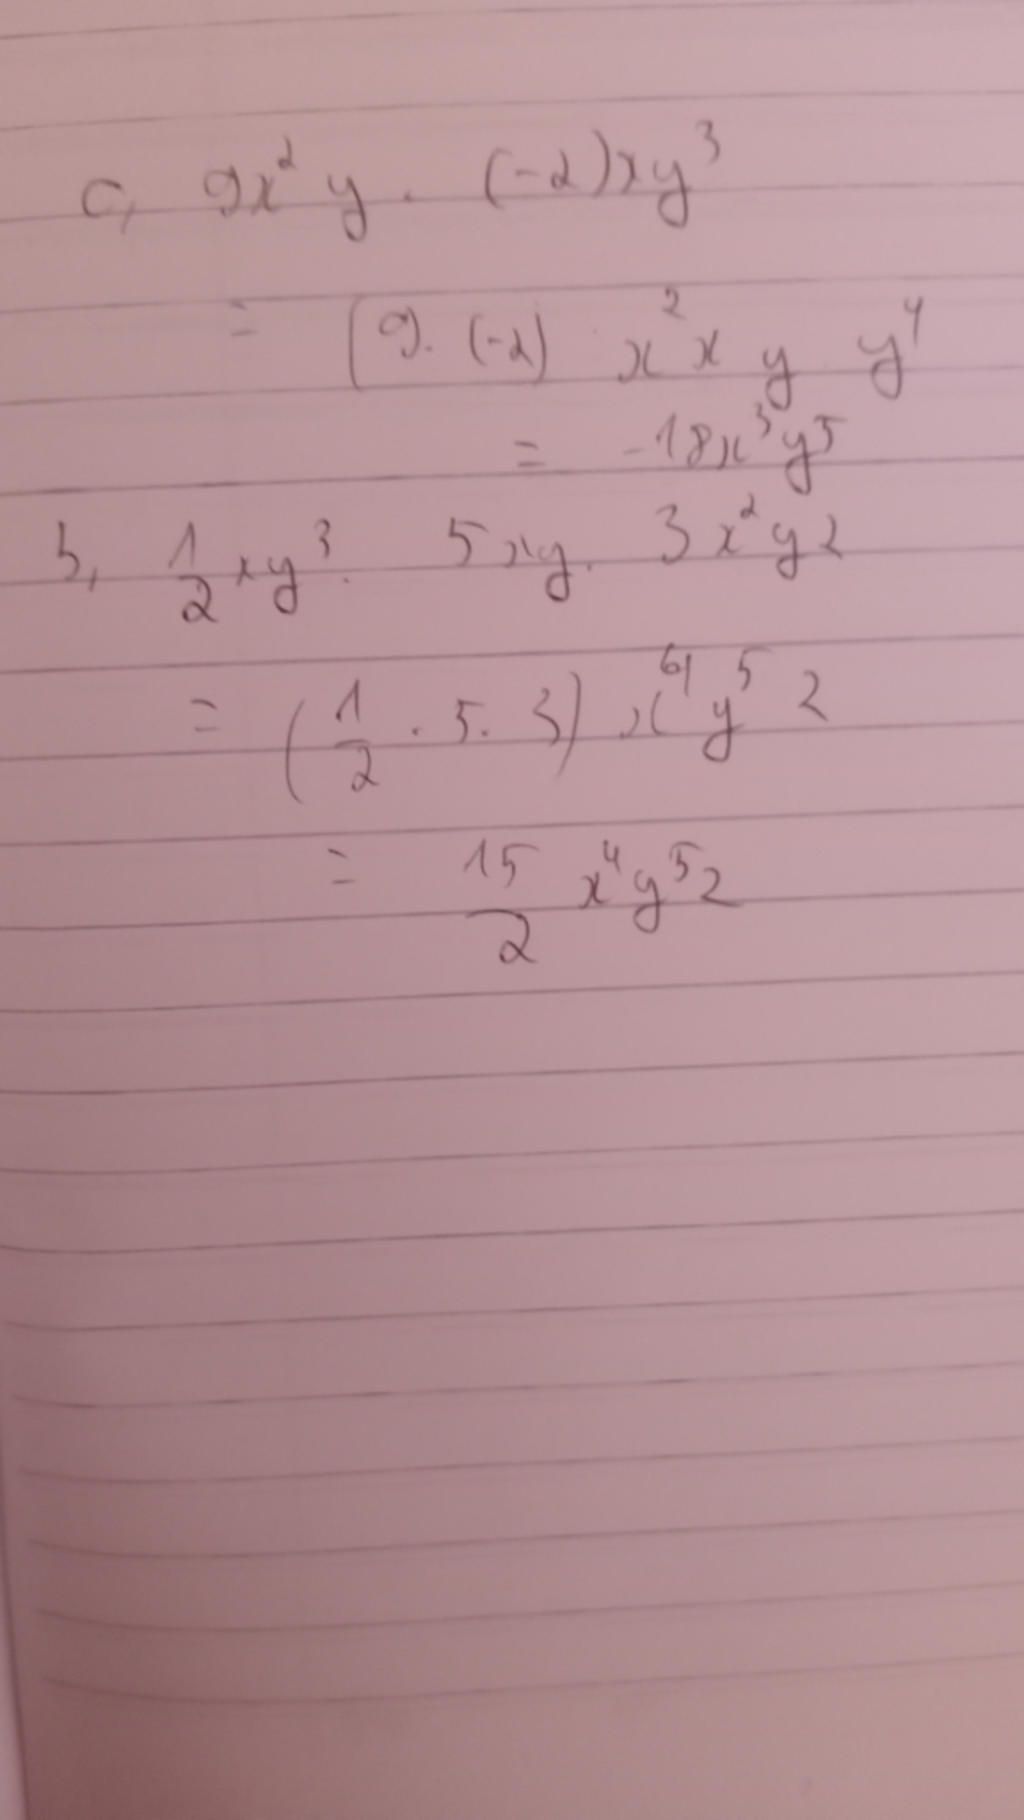 c, 9x² y . (-2)xy³
= (9. (-2) x² x y y⁴
= -18x³y⁵
b, 1/2 xy³. 5xy. 3x²yz
= (1/2 . 5. 3) x⁴ y⁵ z
= 15/2 x⁴y⁵z